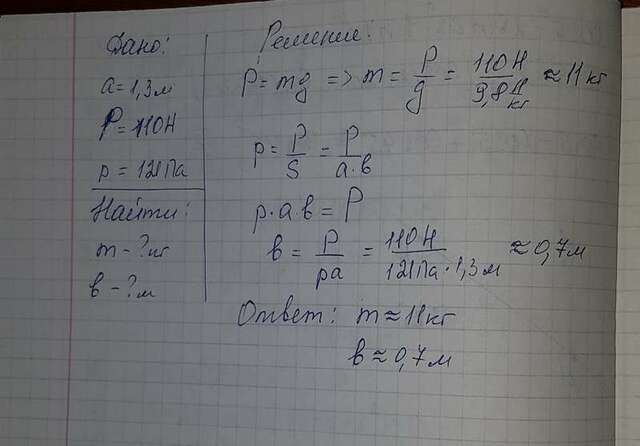 Дано:
a = 1,3м
P = 110Н
p = 121Па
Найти:
m - ?кг
в - ?м
Решение:
P = mg => m = P/g = 110Н/9,8 Н/кг ≈ 11кг
p = P/S = P/a·в
p·a·в = P
в = P/pa = 110Н/121Па·1,3м ≈ 0,7м
Ответ: m ≈ 11кг
в ≈ 0,7м